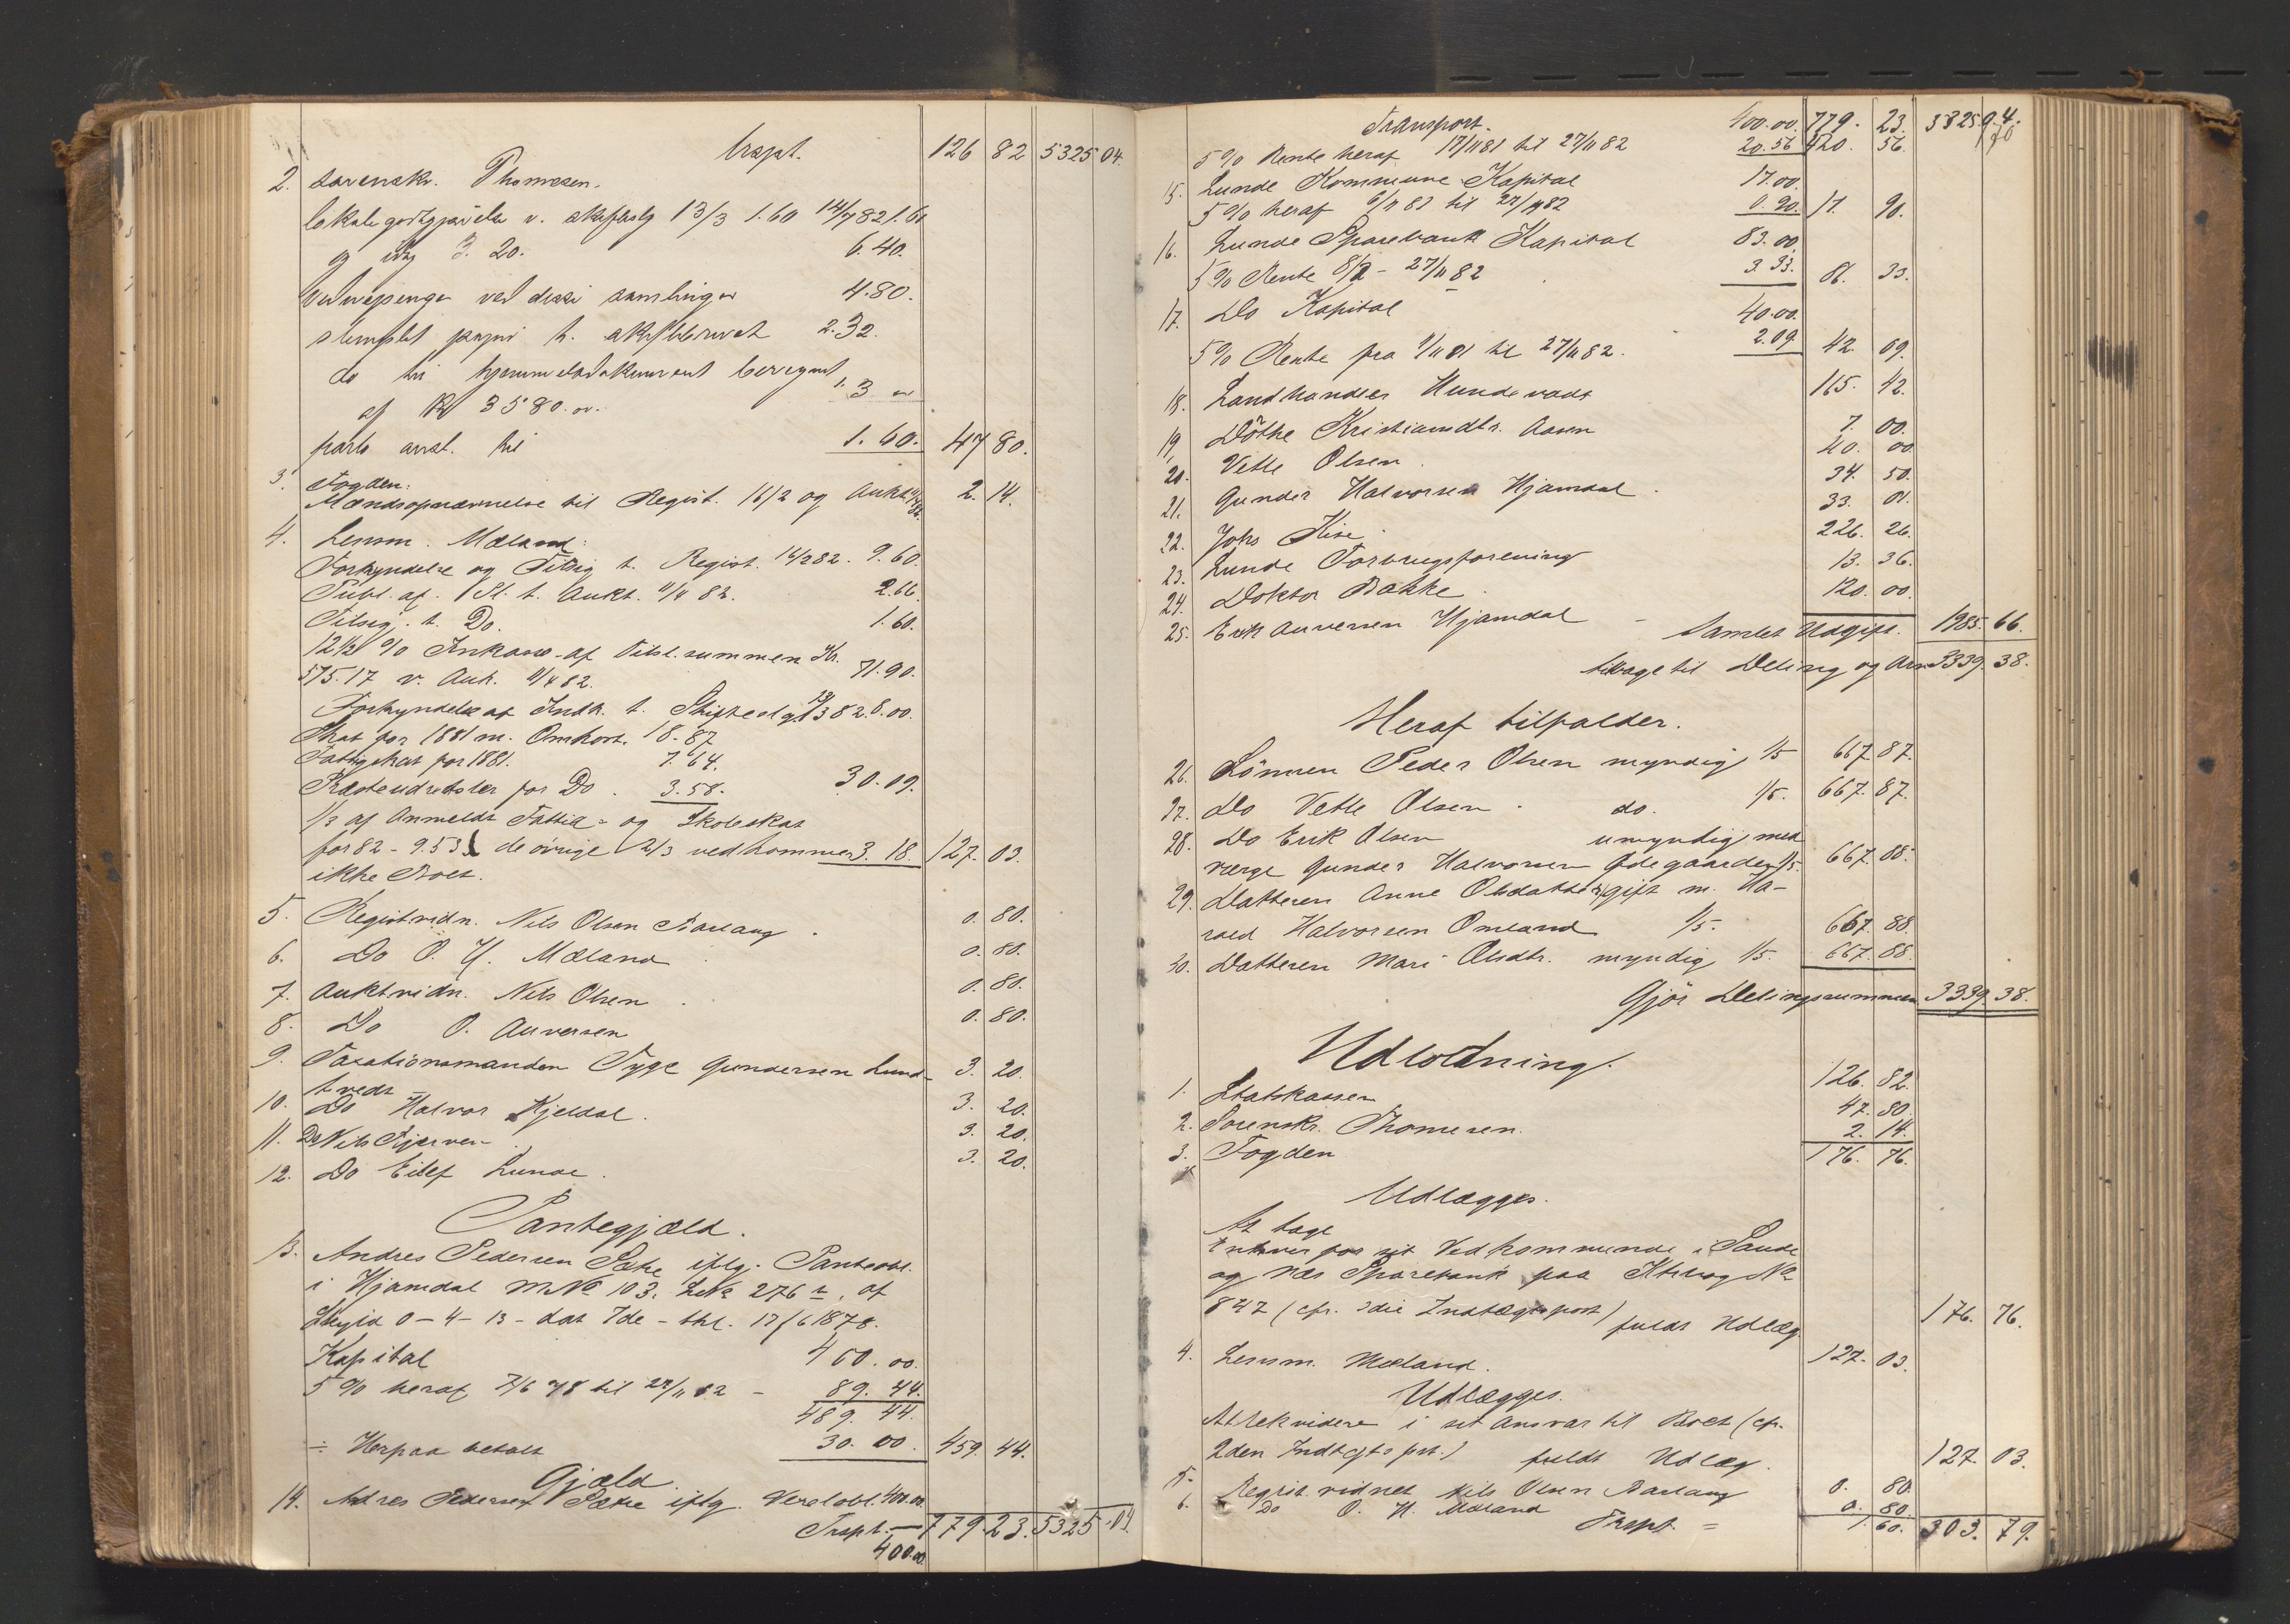 Trspt. 126 82 5325 04.
2. Sorenskr. Thomesen.
lokalegodtgjørelse v. 13/3 1.60 14/7 82 1.60
og idag 3. 20. 6.40.
ved disse samlinger 4.80.
stemplet papir t. 2.32.
do til hjemmelsdokument beregnet
af Kr 3580. 
porto anst. til 1.60. 47 80.
3. Fogden:
Mændsopnævnelse til Regist. 16/2 og Aukt. 2. 14.
4. Lensm. Mæland:
Forkyndelse og Tilsig. t. Regist. 16/2 82. 9.60.
Publ. af Pl. t. Aukt. 11/4 82. 2.66.
Tilsig. t. Do. 1.60.
12 1/2 % Inkasso af Tilsl.summen Kr.
575.17 v. Auk. 11/4 82. 71.90.
Forkyndelse af Indk. t. Skiftesalg 13/3 82. 8.00.
Skat for 1881 m. Omkost. 18.87
Fattigskat for 1881. 7.64.
for Do. 3.58. 30.09.
1/3 af Anmeldt Fattig- og Skoleskat
for 82 - 9.53 de øvrige 2/3 vedkommer 3. 18. 127. 03.
ikke Boet.
5. Registvidn. Nils Olsen Aarlaug. 0. 80.
6. Do O. H. Mæland. 0. 80.
7. Auktvidn. Nils Olsen. 0. 80.
8. Do O. Auversen 0. 80.
9. Taxationsmanden Tyge Gundersen Lund- 3. 20.
tvedt
10. Do Halvor Kjeldal. 3. 20.
11. Do Nils 3. 20.
12. Do Eilef Lunde. 3. 20.
Pantegjæld.
13. Andres Pedersen Sæke iflg. Panteobl.
i Hjamdal MNo 103. LNo 276 af
Skyld 0-4-13- dat 7de - thl. 17/6 1878.
Kapital 400.00.
5 % heraf 7/6 78 til 27/11 82 - 89. 44.
489. 44.
÷ Herpaa betalt 30. 00. 459. 44.
Gjæld.
14. Andres Pedersen Sæke iflg. Verdobl. 400.00.
Trspt. — 779. 23. 5325. 04.
400.00
Transport. 400.00. 779. 23. 5325 04.
5 % Rente heraf 17/11 81 til 27/11 82 20.56 420. 56.
15. Lunde Kommune Kapital 17.00.
5 % heraf 6/11 81 til 27/11 82 0.90. 17. 90.
16. Lunde Sparebank Kapital 83.00.
5 % Rente 8/2 - 27/11 82 3.33. 86. 33.
17. Do Kapital 40.00.
5 % Rente fra 9/11 81 til 27/11 82. 2.09. 42. 09.
18. Landhandler Hundevadt 165. 42.
19. Döthe Kristiansdtr. Aasen 7. 00.
20. Vetle Olsen. 40. 00
21. Gunder Halvorsen Hjamdal. 34. 50.
22. Johs Kise 33. 01.
23. Lunde Forbrugsforening 226. 26.
24. Doktor Bakke. 13. 36.
25. Erik Auversen Hjamdal 120. 00.
Samlet Udgift. 1985. 66.
tilbage til Deling og Arv 3339. 38.
Heraf tilfalder.
26. Sönnen Peder Olsen myndig 1/5 667. 87.
27. Do Vetle Olsen. do. 1/5. 667. 87.
28. Do Erik Olsen umyndig med
værge Gunder Halvorsen Ödegaarden 1/5. 667. 88.
29. Datteren Anne Olsdatter gift m. Ha-
rald Halvorsen Omland 1/5. 667. 88.
30. Datteren Mari Olsdtr. myndig 1/5. 667. 88.
Gjör Delingssummen 3339. 38.
Udlodning.
1. Statskassen 126. 82.
2. Sorenskr. Thomesen. 47. 80.
3. Fogden 2. 14.
176. 76.
Udlægges.
At tage
Enhver for sit Vedkommende i Saude
og Næs Sparebank paa Ktrbog No
847 (cfr. 3die Indtægtspost) fuldt Udlæg. 176. 76.
4. Lensm. Mæland. 127. 03.
Udlægges.
At lekvidere i sit Ansvar til Boet (cfr.
2den Indtgts pst.) fuldt Udlæg. 127. 03.
5. Regist.vidnet Nils Olsen Aarlaug 0. 80.
6. Do O. H. Mæland 0. 80.
Trspt. = 1. 60. 303. 79.